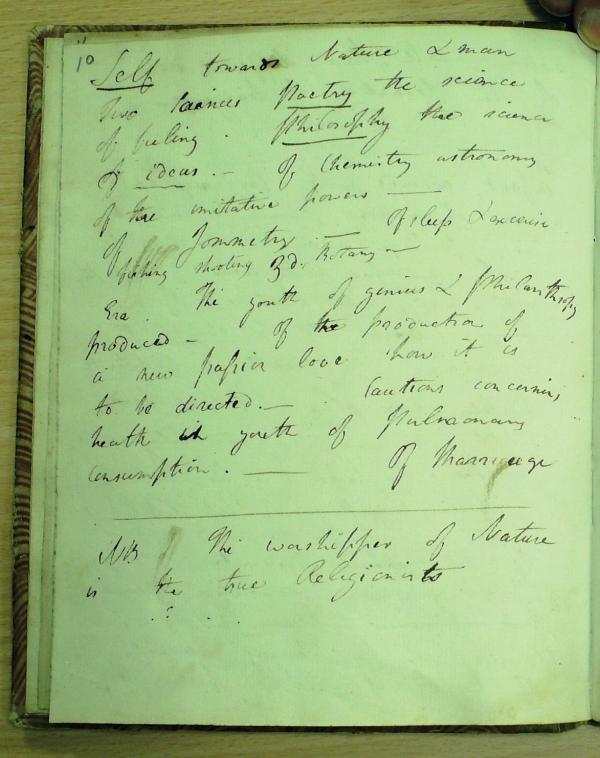 10
Self towards Nature & man
Two Sciences Poetry the science
of feeling . Philosophy the science
of ideas . — Of Chemistry astronomy
of the imitative powers —
Of Geometry — Of sleep & exercise
fishing shooting 3d. Botany —
Era . The youth of genius & Philanthropy
produced — Of the production of
a new passion love how it is
to be directed . — Cautions concerning
health in youth of Pulmonary
consumption . — Of Marriage
NB The worshipper of Nature
is the true Religionists
. ? .